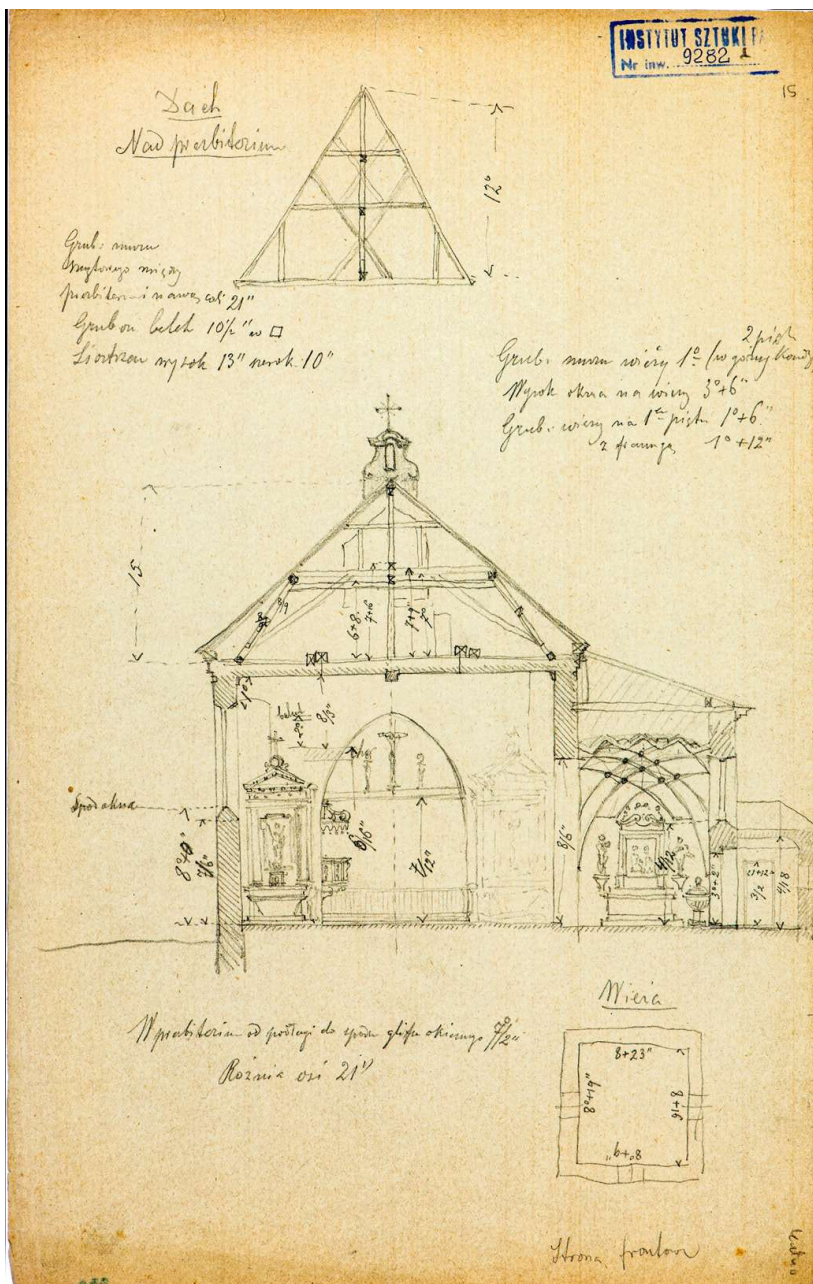 INSTYTUT SZTUKI PA
Nr inw. 9282
15
Dach
Nad prezbiterium
12°
Grub: muru
szczytowego między
prezbiterium i nawą cali 21"
Grubość belek 10½" w □
Siostrzan wysok 13" szerok 10"
2 piętr
Grub: muru wieży 1° (w górnej
Wysok okna na wieży 3°+6"
Grub: wieży na 1em piętrze 1°+6"
z framugą 1°+12"
15
8/9
6+8
7+6
7+9
7°
Spód okna
6/6"
7/12"
8/6"
4/12
3/12
4/18
W prezbiterium od podłogi do spodu glifu okiennego 7/2"
Różnica osi 21"
Wieża
8+23"
8°+19"
8+16
8°+9"
Strona frontow